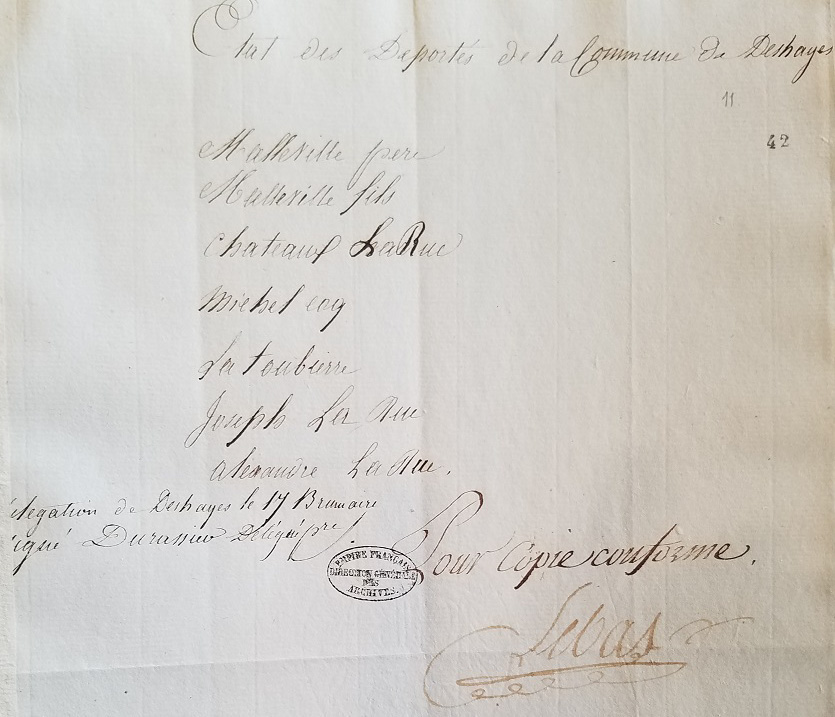 Etat des Deportés de la Commune de Deshayes
11
42
Malleville pere
Malleville fils
Chateaux La Rue
Michel coq
La toubierre
Joseph La Rue
Alexandre La Rue.
élegation de Deshayes le 17 Brumaire
igné Durassier Délégué pre.
EMPIRE FRANÇAIS
DIRECTION GÉNÉRALE
DES
ARCHIVES.
Pour Copie conforme.
Lebas